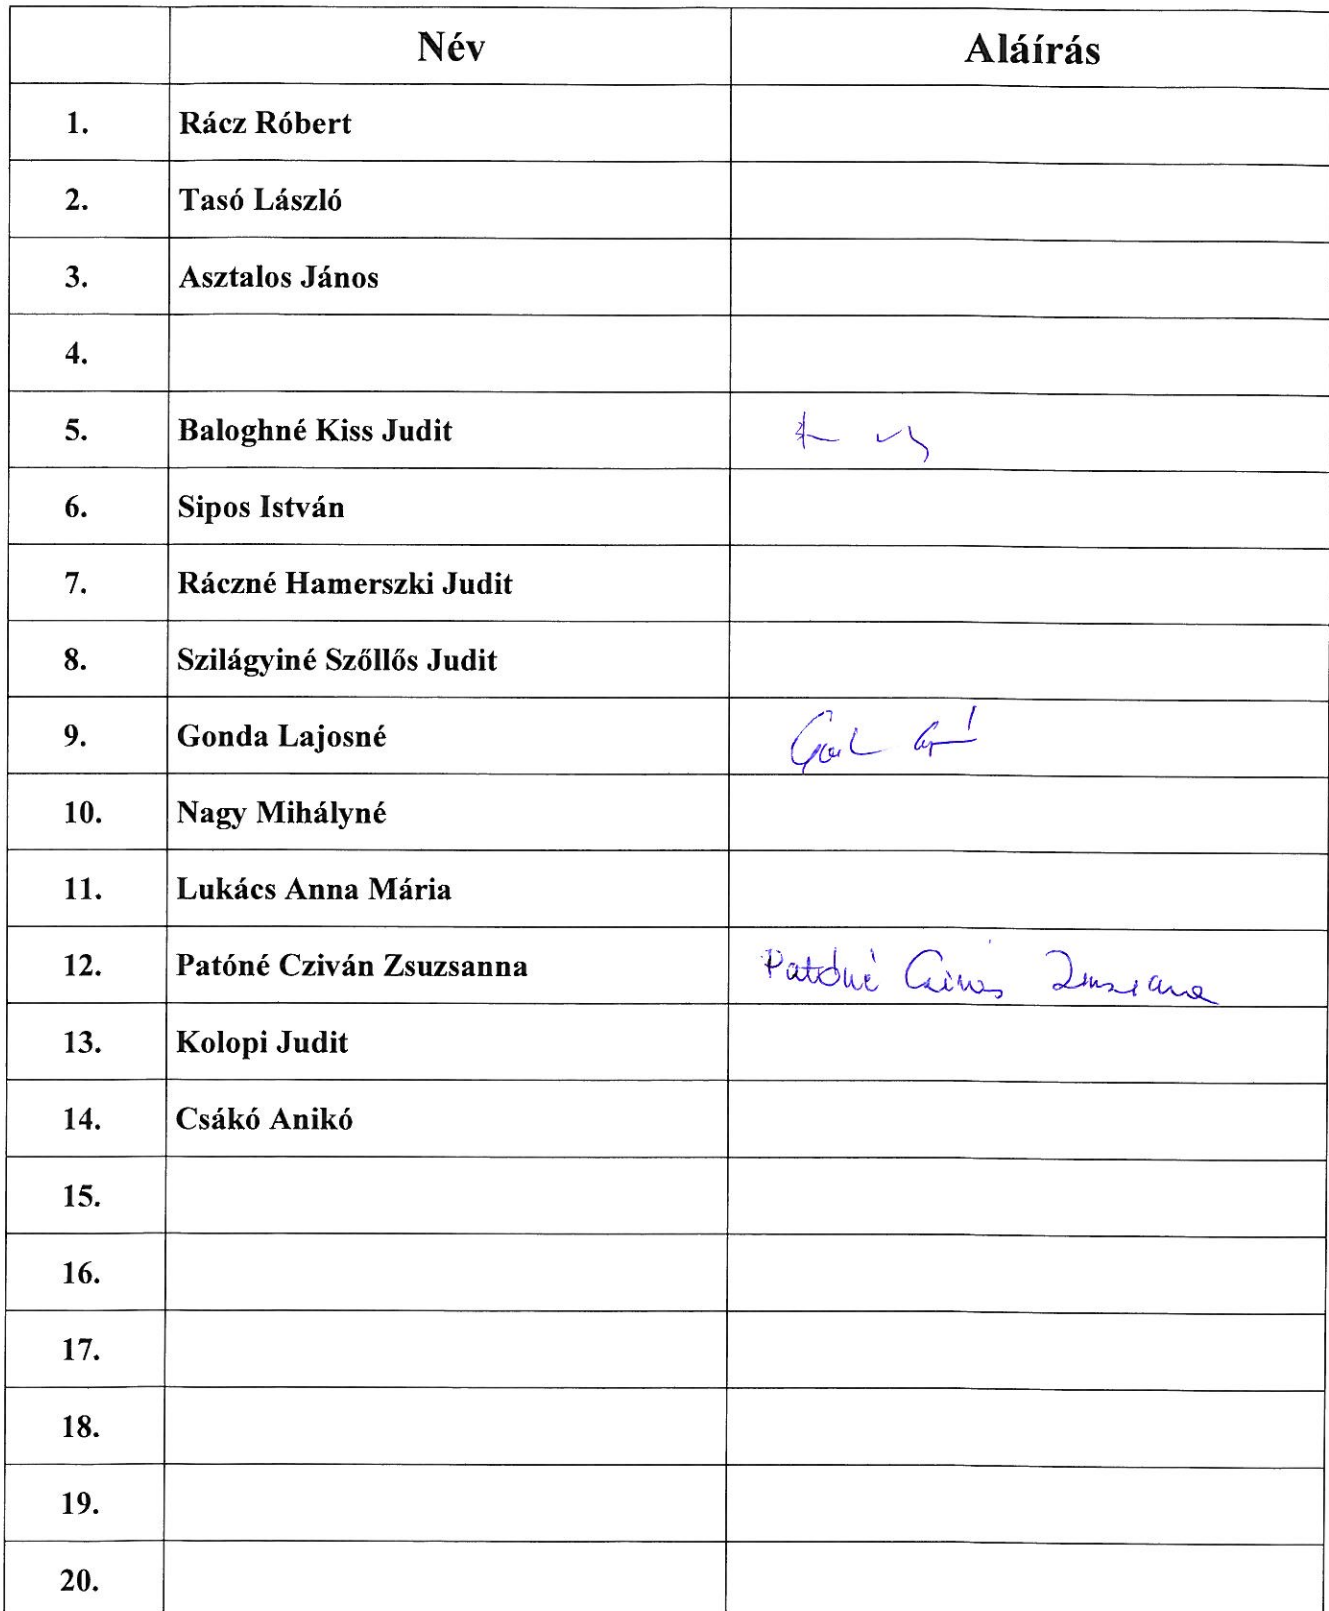 Név Aláírás
1. Rácz Róbert
2. Tasó László
3. Asztalos János
4.
5. Baloghné Kiss Judit
6. Sipos István
7. Ráczné Hamerszki Judit
8. Szilágyiné Szőllős Judit
9. Gonda Lajosné
10. Nagy Mihályné
11. Lukács Anna Mária
12. Patóné Cziván Zsuzsanna Patóné
13. Kolopi Judit
14. Csákó Anikó
15.
16.
17.
18.
19.
20.